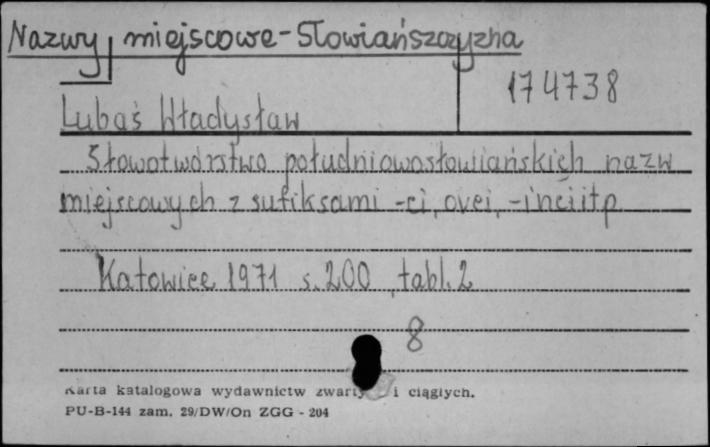 Nazwy miejscowe-Słowiańszczyzna
174738
Lubaś Władysław
Słowotwórstwo południowosłowiańskich nazw
miejscowych z sufiksami -ci, ovci, -inci itp
Katowice 1971 s. 200, tabl. 2
8
Karta katalogowa wydawnictw i ciągłych.
PU-B-144 zam. 29/DW/On ZGG - 204